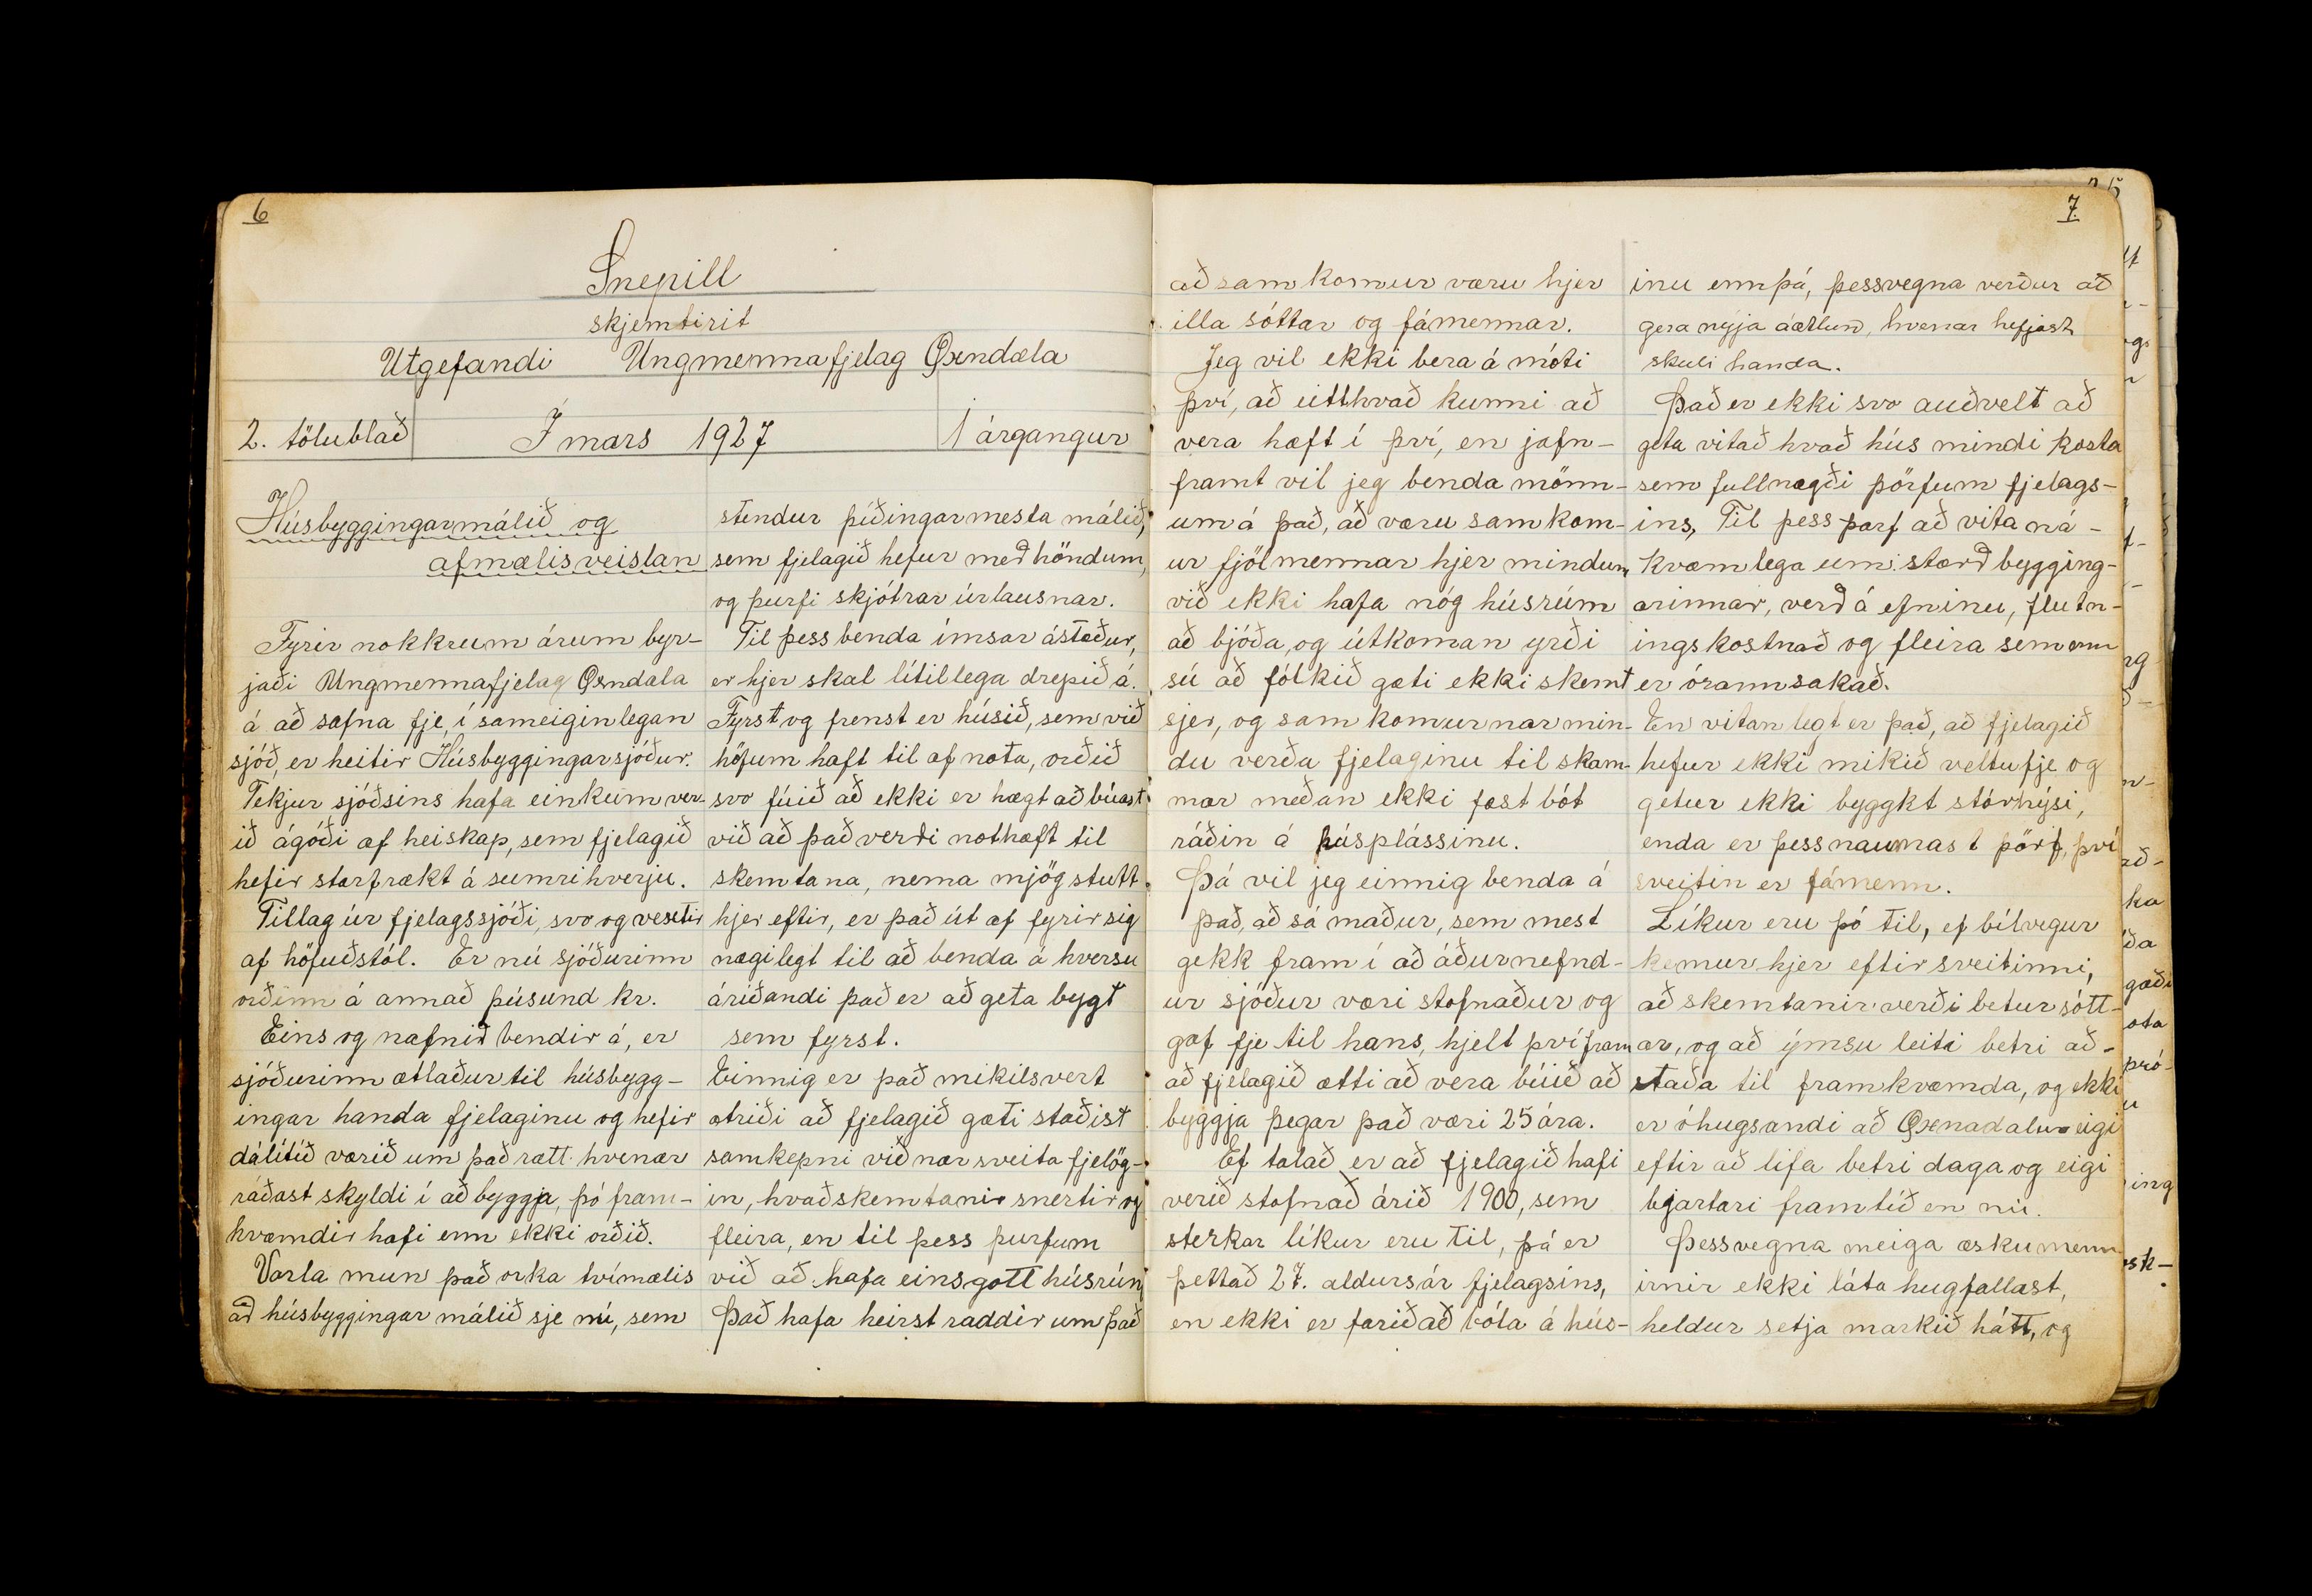 6
Snepill
skjemtirit
Utgefandi Ungmennafjelag Öxndæla
2. tölublað Í mars 1927 1 árgangur
Húsbyggingarmálið og
afmælisveislan
Fyrir nokkrum árum byr-
jaði Ungmennafjelag Öxndæla
á að safna fje, í sameiginlegan
sjóð, er heitir Húsbyggingarsjóður.
Tekjur sjóðsins hafa einkum ver-
ið ágóði af heiskap, sem fjelagið
hefir starfrækt á sumri hverju.
Tillag úr fjelagssjóði, svo og vextir
af höfuðstól. Er nú sjóðurinn
orðinn á annað þúsund kr.
Eins og nafnið bendir á, er
sjóðurinn ætlaður til húsbygg-
ingar handa fjelaginu og hefir
dálítið verið um það rætt hvenær
ráðast skyldi í að byggja, þó fram-
kvæmdir hafi enn ekki orðið.
Varla mun það orka tvímælis
að húsbyggingar málið sje nú, sem
stendur þíðingarmesta málið,
sem fjelagið hefur með höndum,
og þurfi skjótrar úrlausnar.
Til þess benda ímsar ástæður,
er hjer skal lítillega drepið á.
Fyrst og fremst er húsið, sem við
höfum haft til af nota, orðið
svo fúið að ekki er hægt að búast
við að það verði nothæft til
skemtana, nema mjög stutt
hjer eftir, er það út af fyrir sig
nægilegt til að benda á hversu
áríðandi það er að geta bygt
sem fyrst.
Einnig er það mikilsvert
atriði að fjelagið gæti staðist
samkepni við nærsveita fjelög-
in, hvað skemtanir snertir og
fleira, en til þess þurfum
við að hafa eins gott húsrúm
Það hafa heirst raddir um það
7.
að samkomur væru hjer
illa sóttar og fámennar.
Jeg vil ekki bera á móti
því, að eitthvað kunni að
vera hæft í því, en jafn-
framt vil jeg benda mönn-
um á það, að væru samkom-
ur fjölmennar hjer mindum
við ekki hafa nóg húsrúm
að bjóða, og útkoman yrði
sú að fólkið gæti ekki skemt
sjer, og samkomurnar min-
du verða fjelaginu til skam-
mar meðan ekki fæst bót
ráðin á húsplássinu.
Þá vil jeg einnig benda á
það, að sá maður, sem mest
gekk fram í að áðurnefnd-
ur sjóður væri stofnaður og
gaf fje til hans, hjelt því fram
að fjelagið ætti að vera búið að
byggja þegar það væri 25 ára.
Ef talað er að fjelagið hafi
verið stofnað árið 1900, sem
sterkar líkur eru til, þá er
þettað 27. aldursár fjelagsins,
en ekki er farið að bóla á hús-
inu ennþá, þessvegna verður að
gera nýja áætlun, hvenar hefjast
skuli handa.
Það er ekki svo auðvelt að
geta vitað hvað hús mindi kosta
sem fullnægði þörfum fjelags-
ins, Til þess þarf að vita ná-
kvæmlega um stærð bygging-
arinnar, verð á efninu, flutn-
ingskostnað og fleira sem enn
er órannsakað.
En vitanlegt er það, að fjelagið
hefur ekki mikið veltufje og
getur ekki byggkt stórhýsi,
enda er þess naumast þörf, því
sveitin er fámenn.
Líkur eru þó til, ef bílvegur
kemur hjer eftir sveitinni,
að skemtanir verði betur sótt-
ar, og að ýmsu leiti betri að-
staða til framkvæmda, og ekki
er óhugsandi að Öxnadalur eigi
eftir að lifa betri daga og eigi
bjartari framtíð en nú.
Þessvegna meiga æskumenn
irnir ekki láta hugfallast,
heldur setja markið hátt, og